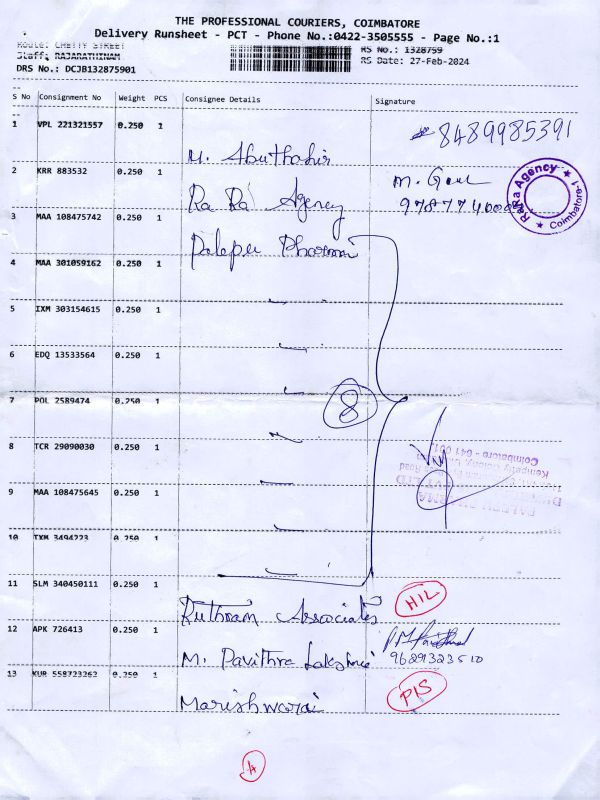 THE PROFESSIONAL COURIERS, COIMBATORE
Delivery Runsheet - PCT - Phone No.:0422-3505555 - Page No.:1
Route: CHETTY STREET
Staff: RAJARATHINAM
RS No.: 1328759
DRS No.: DCJB132875901
RS Date: 27-Feb-2024
S No Consignment No Weight PCS Consignee Details Signature
1 VPL 221321557 0.250 1
M. Abuthahir 8489985391
2 KRR 883532 0.250 1
Ra Ra Agency M.
RaRa Agency ★ Coimbatore-1 ★
3 MAA 108475742 0.250 1
Palepu Pharma
4 MAA 301059162 0.250 1
5 IXM 303154615 0.250 1
6 EDQ 13533564 0.250 1
7 POL 2589474 0.250 1
8
8 TCR 29090030 0.250 1
Coimbatore - 641 001
Kempatty Colony,
Road
PVT LTD
9 MAA 108475645 0.250 1
10 TXM 3494223 0.250 1
11 SLM 340450111 0.250 1
Ruthram Associates HIL
12 APK 726413 0.250 1
M. Pavithra Lakshmi 9689323510
13 KUR 558723262 0.250 1
Marishwarai PIS